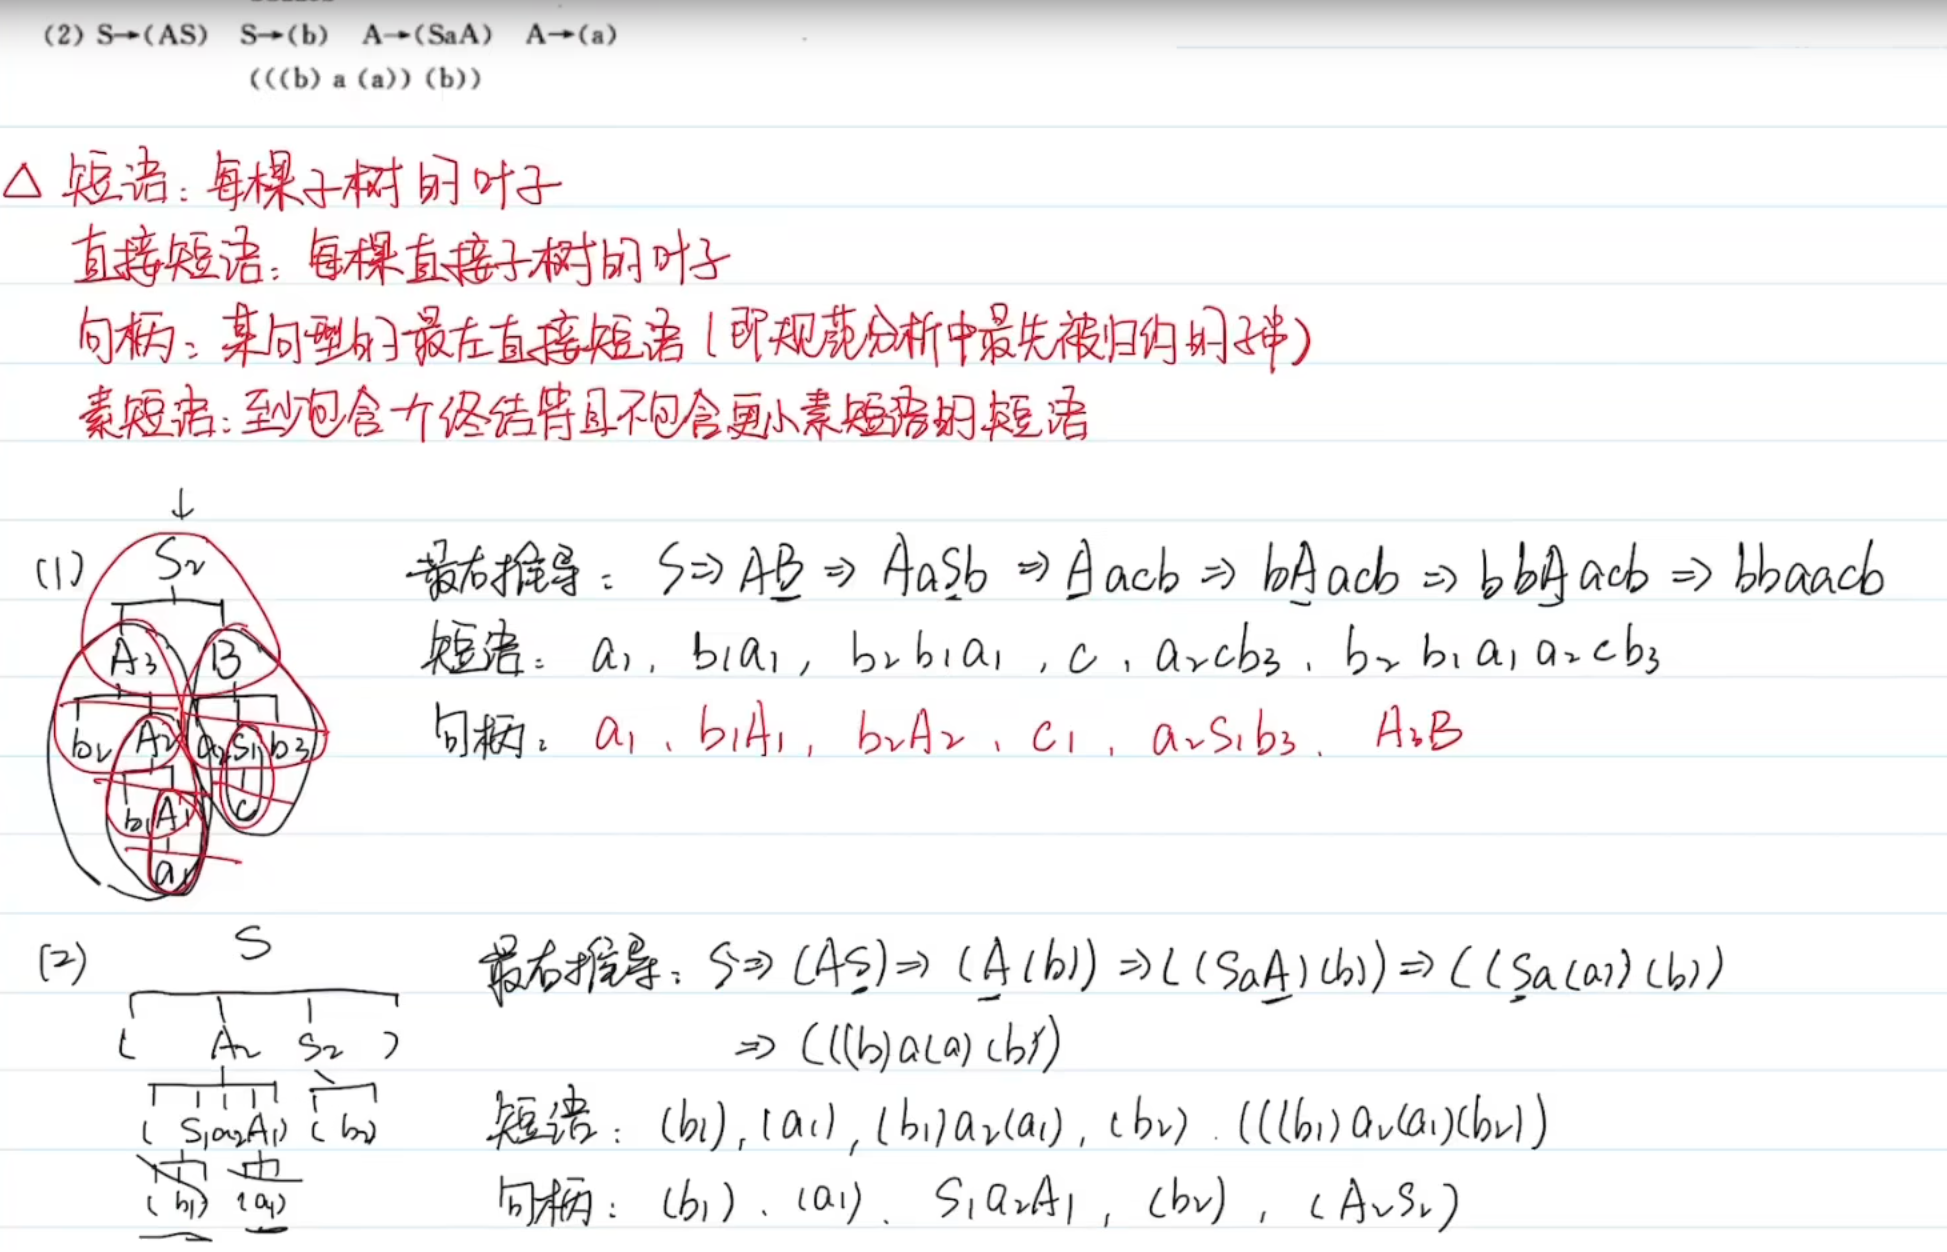 (2) S→(AS) S→(b) A→(SaA) A→(a)
(((b) a (a)) (b))
△ 短语：每棵子树的叶子
直接短语：每棵直接子树的叶子
句柄：某句型的最左直接短语(即规范分析中最先被归约的子串)
素短语：至少包含一个终结符且不包含更小素短语的短语
(1)
S₂
A₃ B
b₂ A₂ a₂ S₁ b₃
b₁ A₁ c
a₁
最右推导：S⇒AB⇒AaSb⇒Aacb⇒bAacb⇒bbAacb⇒bbaacb
短语：a₁, b₁a₁, b₂b₁a₁, c, a₂cb₃, b₂b₁a₁a₂cb₃
句柄：a₁、b₁A₁, b₂A₂、c₁, a₂S₁b₃、A₃B
(2)
S
( A₂ S₂ )
( S₁a₂A₁) ( b₂)
( b₁) (a₁)
最右推导：S⇒(AS)⇒(A(b))⇒((SaA)(b))⇒((Sa(a))(b))
⇒(((b)a(a)(b))
短语：(b₁), (a₁), (b₁)a₂(a₁), (b₂). (((b₁)a₂(a₁)(b₂))
句柄：(b₁)、(a₁)、S₁a₂A₁, (b₂), (A₂S₂)